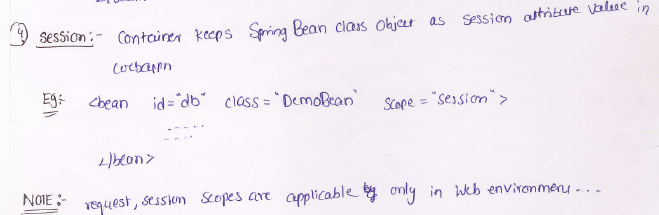 ④ session:- Container keeps Spring Bean class object as session attribute value in
webappn
Eg:- <bean id="db" class="DemoBean" scope="session">
-----
-----
</bean>
NOTE:- request, session scopes are applicable only in Web environment...